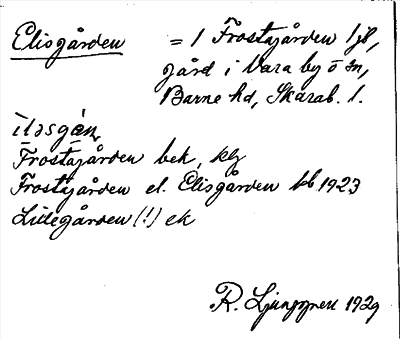 Elisgården = 1 Frostagården 1/8,
gård i Vara by o sn,
Barne hd, Skarab. l.
ìlɘsgán
Frostagården bek, klg
Frostagården el. Elisgården kb 1923
Lidegården (!) ek
R. Ljunggren 1929